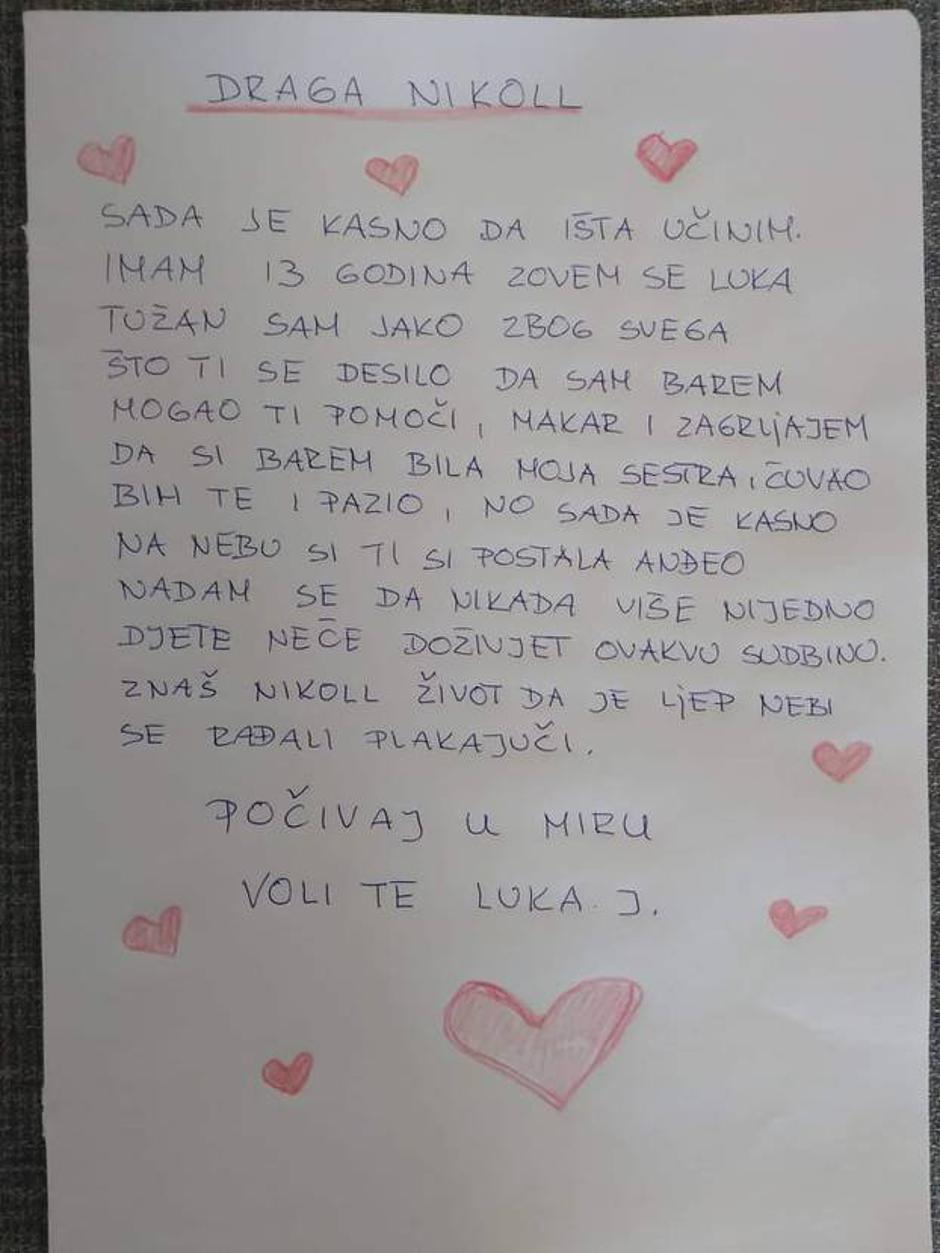 DRAGA NIKOLL
SADA JE KASNO DA IŠTA UČINIM.
IMAM 13 GODINA ZOVEM SE LUKA
TUŽAN SAM JAKO ZBOG SVEGA
ŠTO TI SE DESILO DA SAM BAREM
MOGAO TI POMOČI, MAKAR I ZAGRLjAJEM
DA SI BAREM BILA MOJA SESTRA, ČUVAO
BIH TE I PAZIO, NO SADA JE KASNO
NA NEBU SI TI SI POSTALA ANĐEO
NADAM SE DA NIKADA VIŠE NIJEDNO
DJETE NEČE DOŽIVJET OVAKVU SUDBINU.
ZNAŠ NIKOLL ŽIVOT DA JE LjEP NEBI
SE RAĐALI PLAKAJUČI.
POČIVAJ U MIRU
VOLI TE LUKA. J.